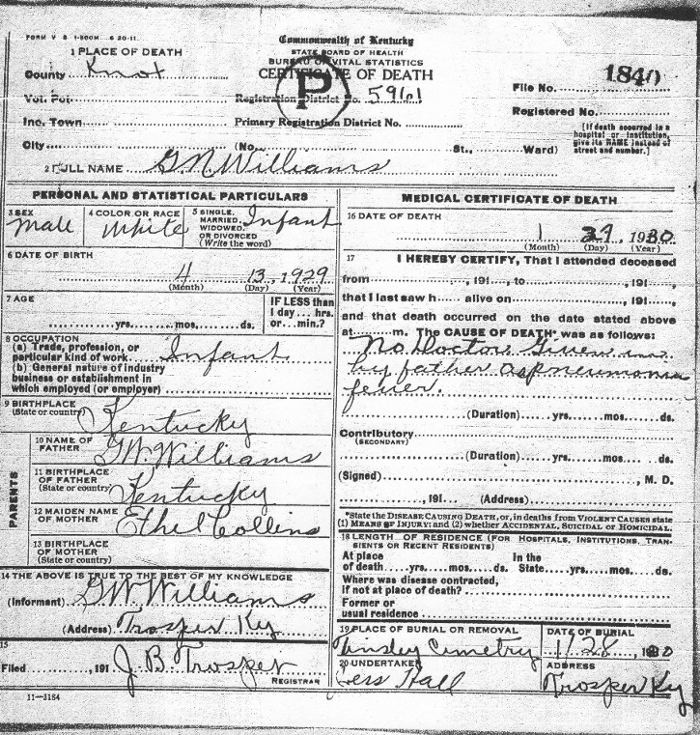 FORM V. S. 1-500M 6 20-11.
Commonwealth of Kentucky
STATE BOARD OF HEALTH
BUREAU OF VITAL STATISTICS
CERTIFICATE OF DEATH
P
1 PLACE OF DEATH
County Knox
Vot. Pct.
Registration District No. 5961
File No. 1840
Registered No.
Inc. Town
Primary Registration District No.
City (No. St., Ward)
[If death occurred in a hospital or institution, give its NAME instead of street and number.]
2 FULL NAME G N Williams
PERSONAL AND STATISTICAL PARTICULARS
3 SEX Male
4 COLOR OR RACE White
5 SINGLE, MARRIED, WIDOWED, OR DIVORCED (Write the word) Infant
6 DATE OF BIRTH
4 13, 1929
(Month) (Day) (Year)
7 AGE
yrs. mos. ds.
IF LESS than 1 day... hrs. or... min.?
8 OCCUPATION
(a) Trade, profession, or particular kind of work. Infant
(b) General nature of industry business or establishment in which employed (or employer)
9 BIRTHPLACE (State or country) Kentucky
PARENTS
10 NAME OF FATHER G W Williams
11 BIRTHPLACE OF FATHER (State or country) Kentucky
12 MAIDEN NAME OF MOTHER Ethel Collins
13 BIRTHPLACE OF MOTHER (State or country)
14 THE ABOVE IS TRUE TO THE BEST OF MY KNOWLEDGE
(Informant) G W Williams
(Address) Trosper Ky
15
Filed , 191 J. B. Trosper
REGISTRAR
11-3184
MEDICAL CERTIFICATE OF DEATH
16 DATE OF DEATH
1 29, 1930
(Month) (Day) (Year)
17 I HEREBY CERTIFY, That I attended deceased
from , 191 , to , 191 ,
that I last saw h alive on , 191 ,
and that death occurred on the date stated above
at m. The CAUSE OF DEATH* was as follows:
No Doctor Given in
by father as pneumonia
fever.
(Duration) yrs. mos. ds.
Contributory
(SECONDARY)
(Duration) yrs. mos. ds.
(Signed) , M. D.
, 191 (Address)
*State the DISEASE CAUSING DEATH, or, in deaths from VIOLENT CAUSES state
(1) MEANS OF INJURY; and (2) whether ACCIDENTAL, SUICIDAL or HOMICIDAL.
18 LENGTH OF RESIDENCE (FOR HOSPITALS, INSTITUTIONS, TRANSIENTS OR RECENT RESIDENTS)
At place of death yrs. mos. ds. In the State yrs. mos. ds.
Where was disease contracted,
if not at place of death?
Former or
usual residence
19 PLACE OF BURIAL OR REMOVAL
Tinsley Cimetry
DATE OF BURIAL
1/28, 1930
20 UNDERTAKER
Hall
ADDRESS
Trosper Ky